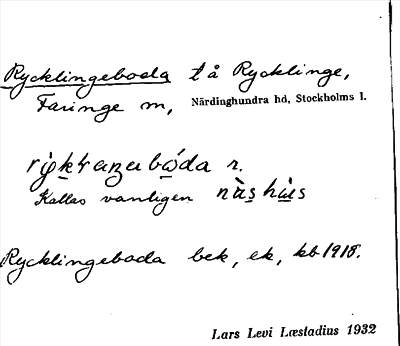 Rycklingeboda t å Rycklinge,
Faringe sn, Närdinghundra hd, Stockholms l.
Kallas vanligen nàs hùs
Rycklingeboda bek, ek, kb 1918.
Lars Levi Læstadius 1932